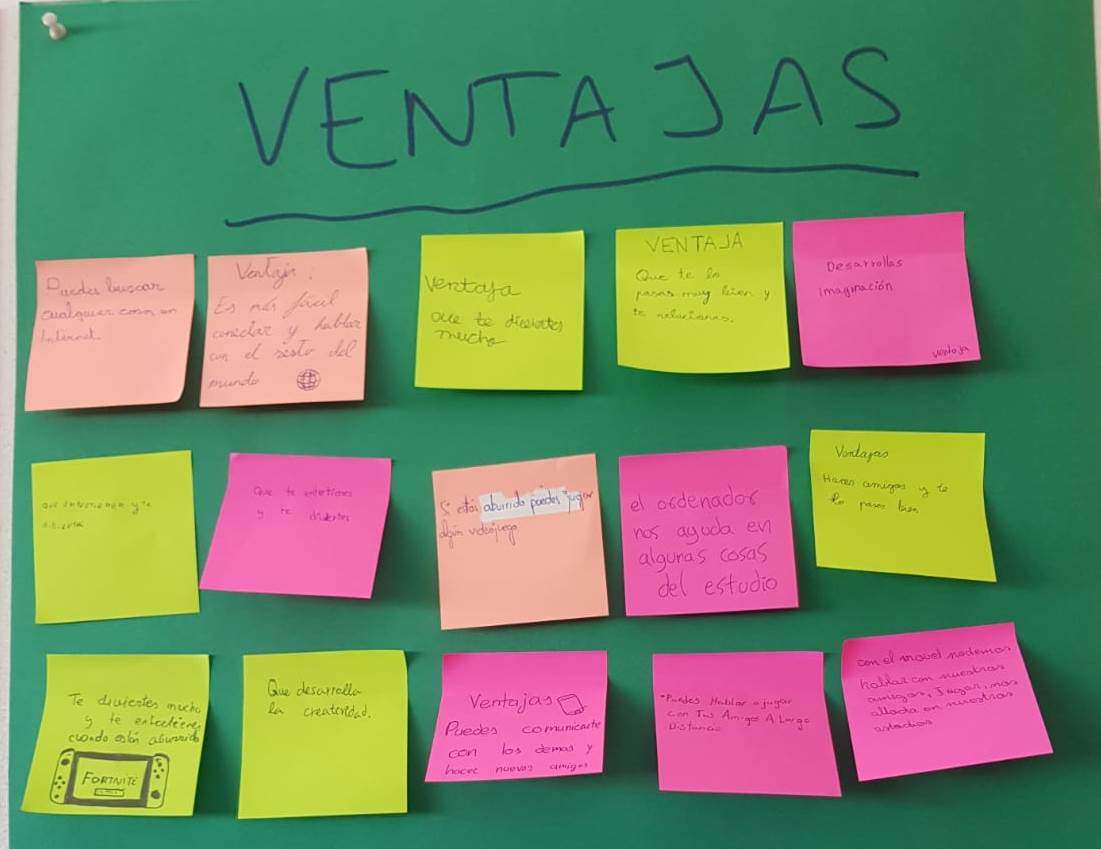 VENTAJAS
Puedes buscar
cualquier cosa en
Internet.
Ventaja:
Es más fácil
conectar y hablar
con el resto del
mundo
Ventaja
que te diviertes
mucho
VENTAJA
Que te lo
pasas muy bien y
te relacionas.
Desarrollas
imaginación
ventaja
que y te
Que te entetienes
y te diviertes
Si estás aburrido puedes jugar
algún videojuego
el ordenador
nos ayuda en
algunas cosas
del estudio
Ventajas
Haces amigos y te
lo pases bien
Te diviertes mucho
y te entretienes
cuando estás aburrido
FORTNITE
Que desarrolla
la creatividad.
Ventajas
Puedes comunicarte
con los demas y
hacer nuevos amigos
Puedes Hablar o jugar
Con Tus Amigos A Larga
Distancia
con el movil podemos
hablar con nuestros
amigos, Jugar, nos
en nuestros
estudios